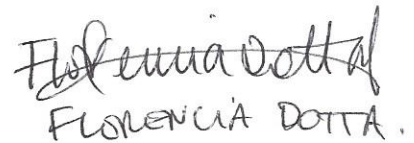 Florencia Dotta
FLORENCIA DOTTA.